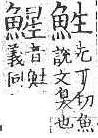 鮏
先丁切魚
說文臭也
鯹
音鮏
義同